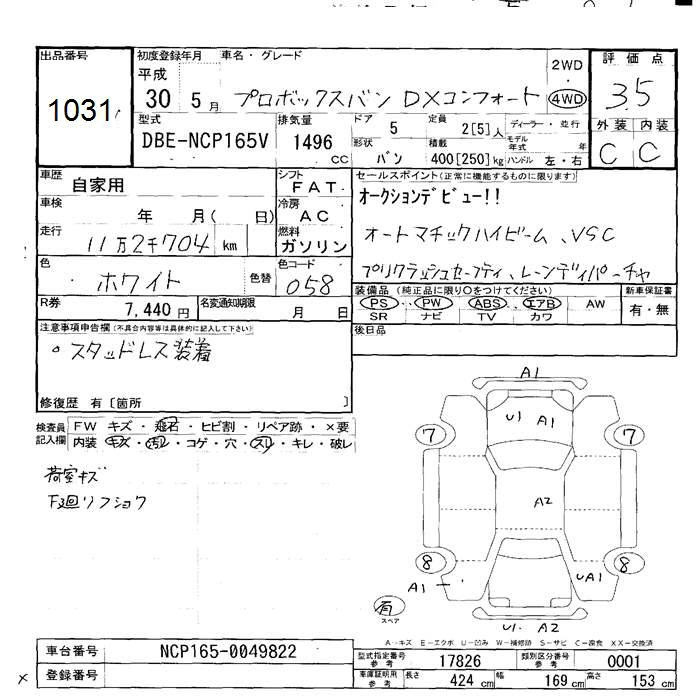 出品番号
1031
初度登録年月
平成
30 5 月
車名・グレード
プロボックスバン DXコンフォート
2WD
・
4WD
評価点
3.5
外装 内装
C C
型式
DBE-NCP165V
排気量
1496
cc
ドア
5
定員
2[5] 人
ディーラー・並行
モデル年式 年
形状
バン
積載
400[250] kg
ハンドル 左・右
車歴
自家用
シフト
FAT
車検
年 月( 日)
冷房
AC
走行
11万2千704 km
燃料
ガソリン
色
ホワイト
色替
色コード
058
R券
7,440 円
名変通知期限
月 日
セールスポイント(正常に機能するものに限ります)
オークションデビュー!!
オートマチックハイビーム、VSC
プリクラッシュセーフティ、レーンディパーチャ
装備品(純正品に限り○をつけてください)
PS ・ PW ・ ABS ・ エアB ・ AW
SR ナビ TV カワ
新車保証書
有・無
後日品
注意事項申告欄(不具合内容等は具体的に記入して下さい)
○スタッドレス装着
修復歴 有〔箇所 〕
検査員記入欄
FW キズ・飛石・ヒビ割・リペア跡・×要
内装 キズ・汚レ・コゲ・穴・スレ・キレ・破レ
荷室キズ
下廻リフショク
A1
U1 A1
7
7
A2
8
8
A1
UA1
有
スペア
U1 A2
A…キズ E…エクボ U…凹み W…補修跡 S…サビ C…腐食 XX…交換済
車台番号
NCP165-0049822
登録番号
型式指定番号
参考
17826
類別区分番号
参考
0001
車庫証明用
参考
長さ
424 cm
幅
169 cm
高さ
153 cm